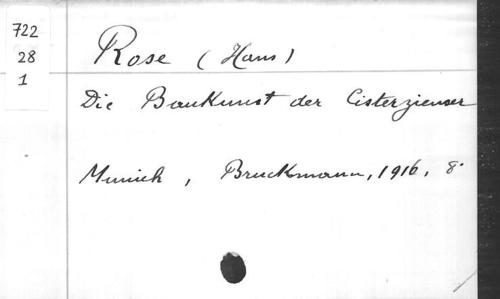 722
28
1
Rose (Hans)
Die Baukunst der Cisterzienser
Munich, Bruckmann, 1916, 8°